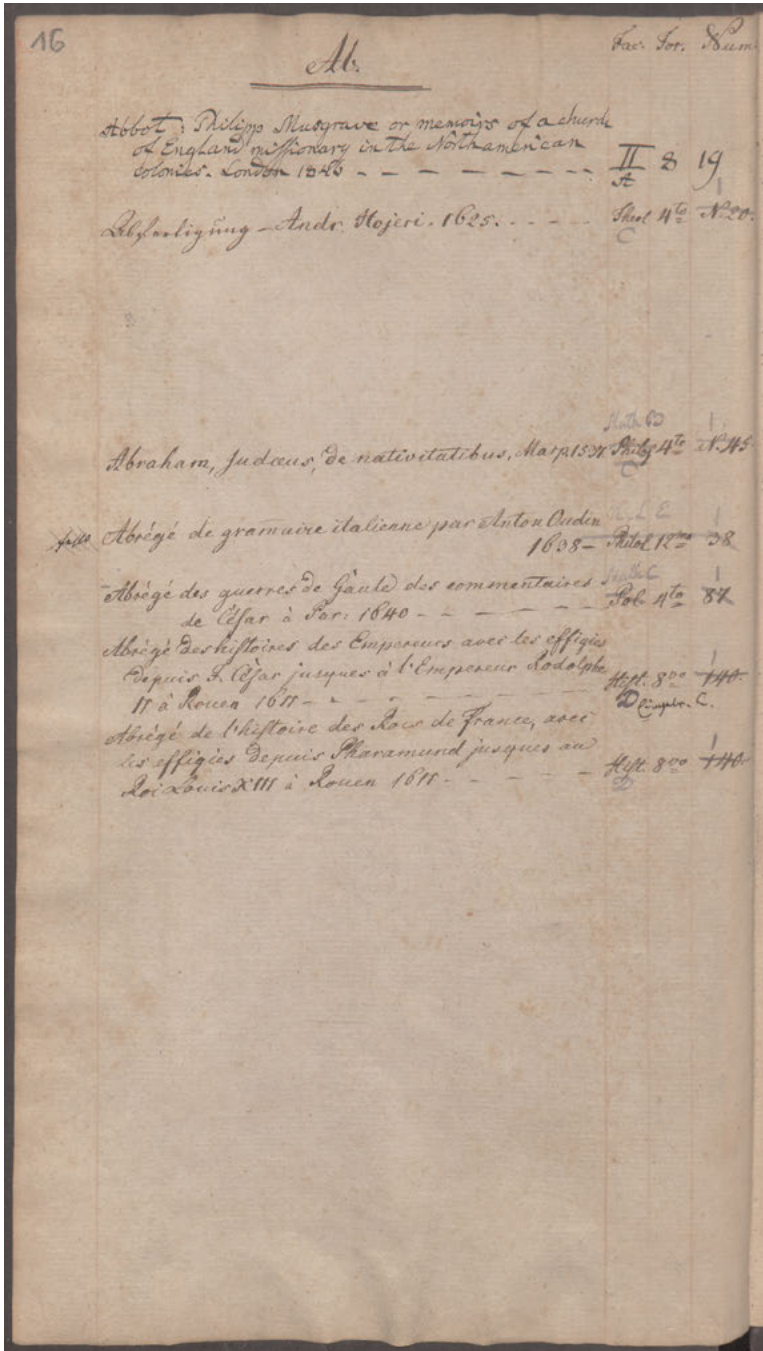 16
Ab.
Fac. For. Num
Abbot: Philipp Musgrave or memoirs of a church
of England missionary in the Northamerican
colonies. London 1846 - - - - - - - - II A 8 19
Abfertigung - Andr. Hojeri. 1625. - - - - Theol 4to No 20. 1
C
Math B 1
Abraham, Judæus, de nativitatibus, Marp. 1537. Philos 4to No. 45
C
Abrégé de gramaire italienne par Anton Oudin
1638 - Philol 12mo 38 1
Abrégé des guerres de Gaule des commentaires
de César à Par: 1640 - - - - - - - Pol. 4to 87 1
Abrégé des histoires des Empereurs avec les effigies
depuis J. César jusques à l'Empereur Rodolphe
II à Rouen 1611 - - - - - - - - Hist. 8vo 140 1
D C.
Abrégé de l'histoire des Rois de France, avec
les effigies depuis Pharamund jusques au
Roi Louis XIII à Rouen 1611 - - - - - Hist. 8vo 140 1
D